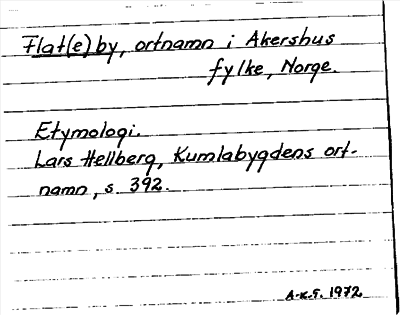 Flat(e)by, ortnamn i Akershus
fylke, Norge.
Etymologi.
Lars Hellberg, Kumlabygdens ort-
namn, s. 392.
A-K.S. 1972